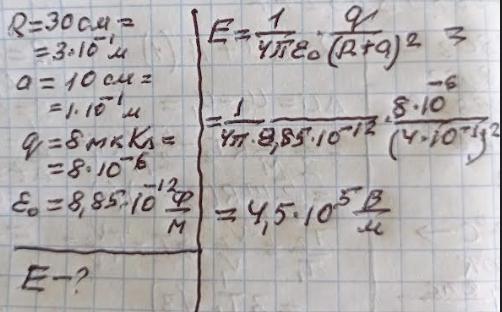 R = 30 см =
= 3·10⁻¹ м
a = 10 см =
= 1·10⁻¹ м
q = 8 мкКл =
= 8·10⁻⁶
ε₀ = 8,85·10⁻¹² Ф/м
E – ?
E = 1/(4πε₀) · q/(R+a)² =
= 1/(4π·8,85·10⁻¹²) · 8·10⁻⁶/(4·10⁻¹)²
= 4,5·10⁵ В/м